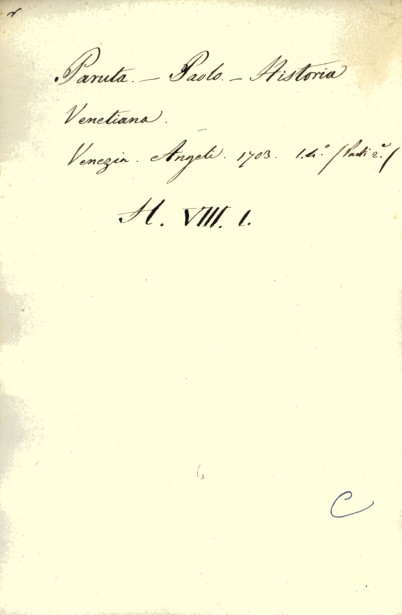 Paruta. — Paolo. — Historia
Venetiana.
Venezia. Angeli. 1703. 1. 4.° /Parti 2.ª/
H. VIII. 1.
C